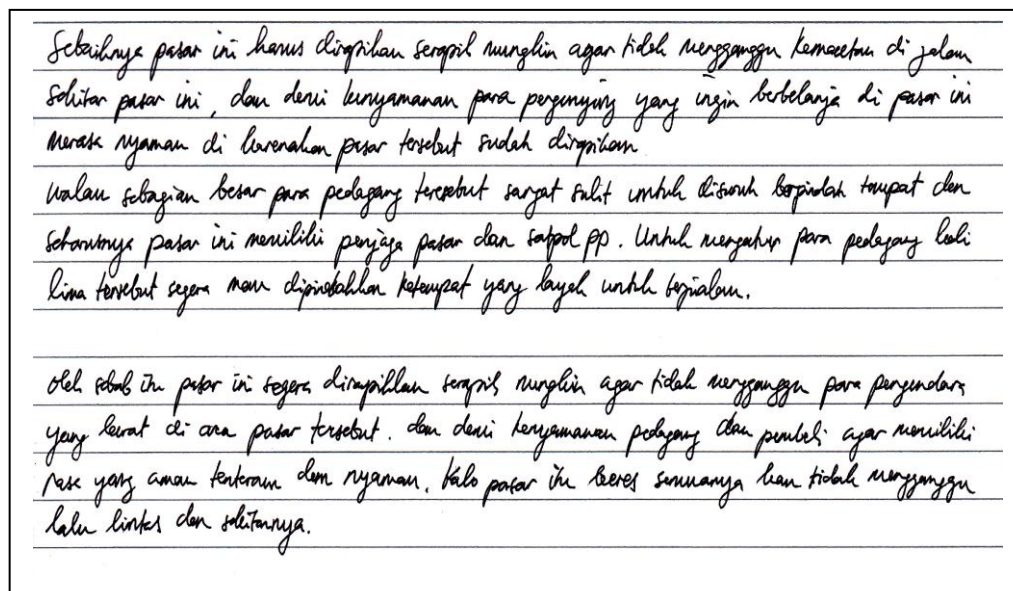 Sebaiknya pasar ini harus dirapihan serapih mungkin agar tidak mengganggu kemacetan di jalan
sekitar pasar ini, dan demi kenyamanan para pengunjung yang ingin berbelanja di pasar ini
merasa nyaman di karenakan pasar tersebut sudah dirapihan
walau sebagian besar para pedagang teresebut sangat sulit untuk disuruh berpindah tempat dan
seharusnya pasar ini memiliki penjaga pasar dan satpol pp. Untuk mengatur para pedagang kaki
lima tersebut segera mau dipindahkan ketempat yang layak untuk berjualan.
oleh sebab itu pasar ini segera dirapihkan serapih mungkin agar tidak mengganggu para pengendara
yang lewat di area pasar tersebut. dan demi kenyamanan pedagang dan pembeli agar memiliki
rasa yang aman tenteram dan nyaman. Kalo pasar itu beres semuanya kan tidak mengganggu
lalu lintas dan sekitarnya.